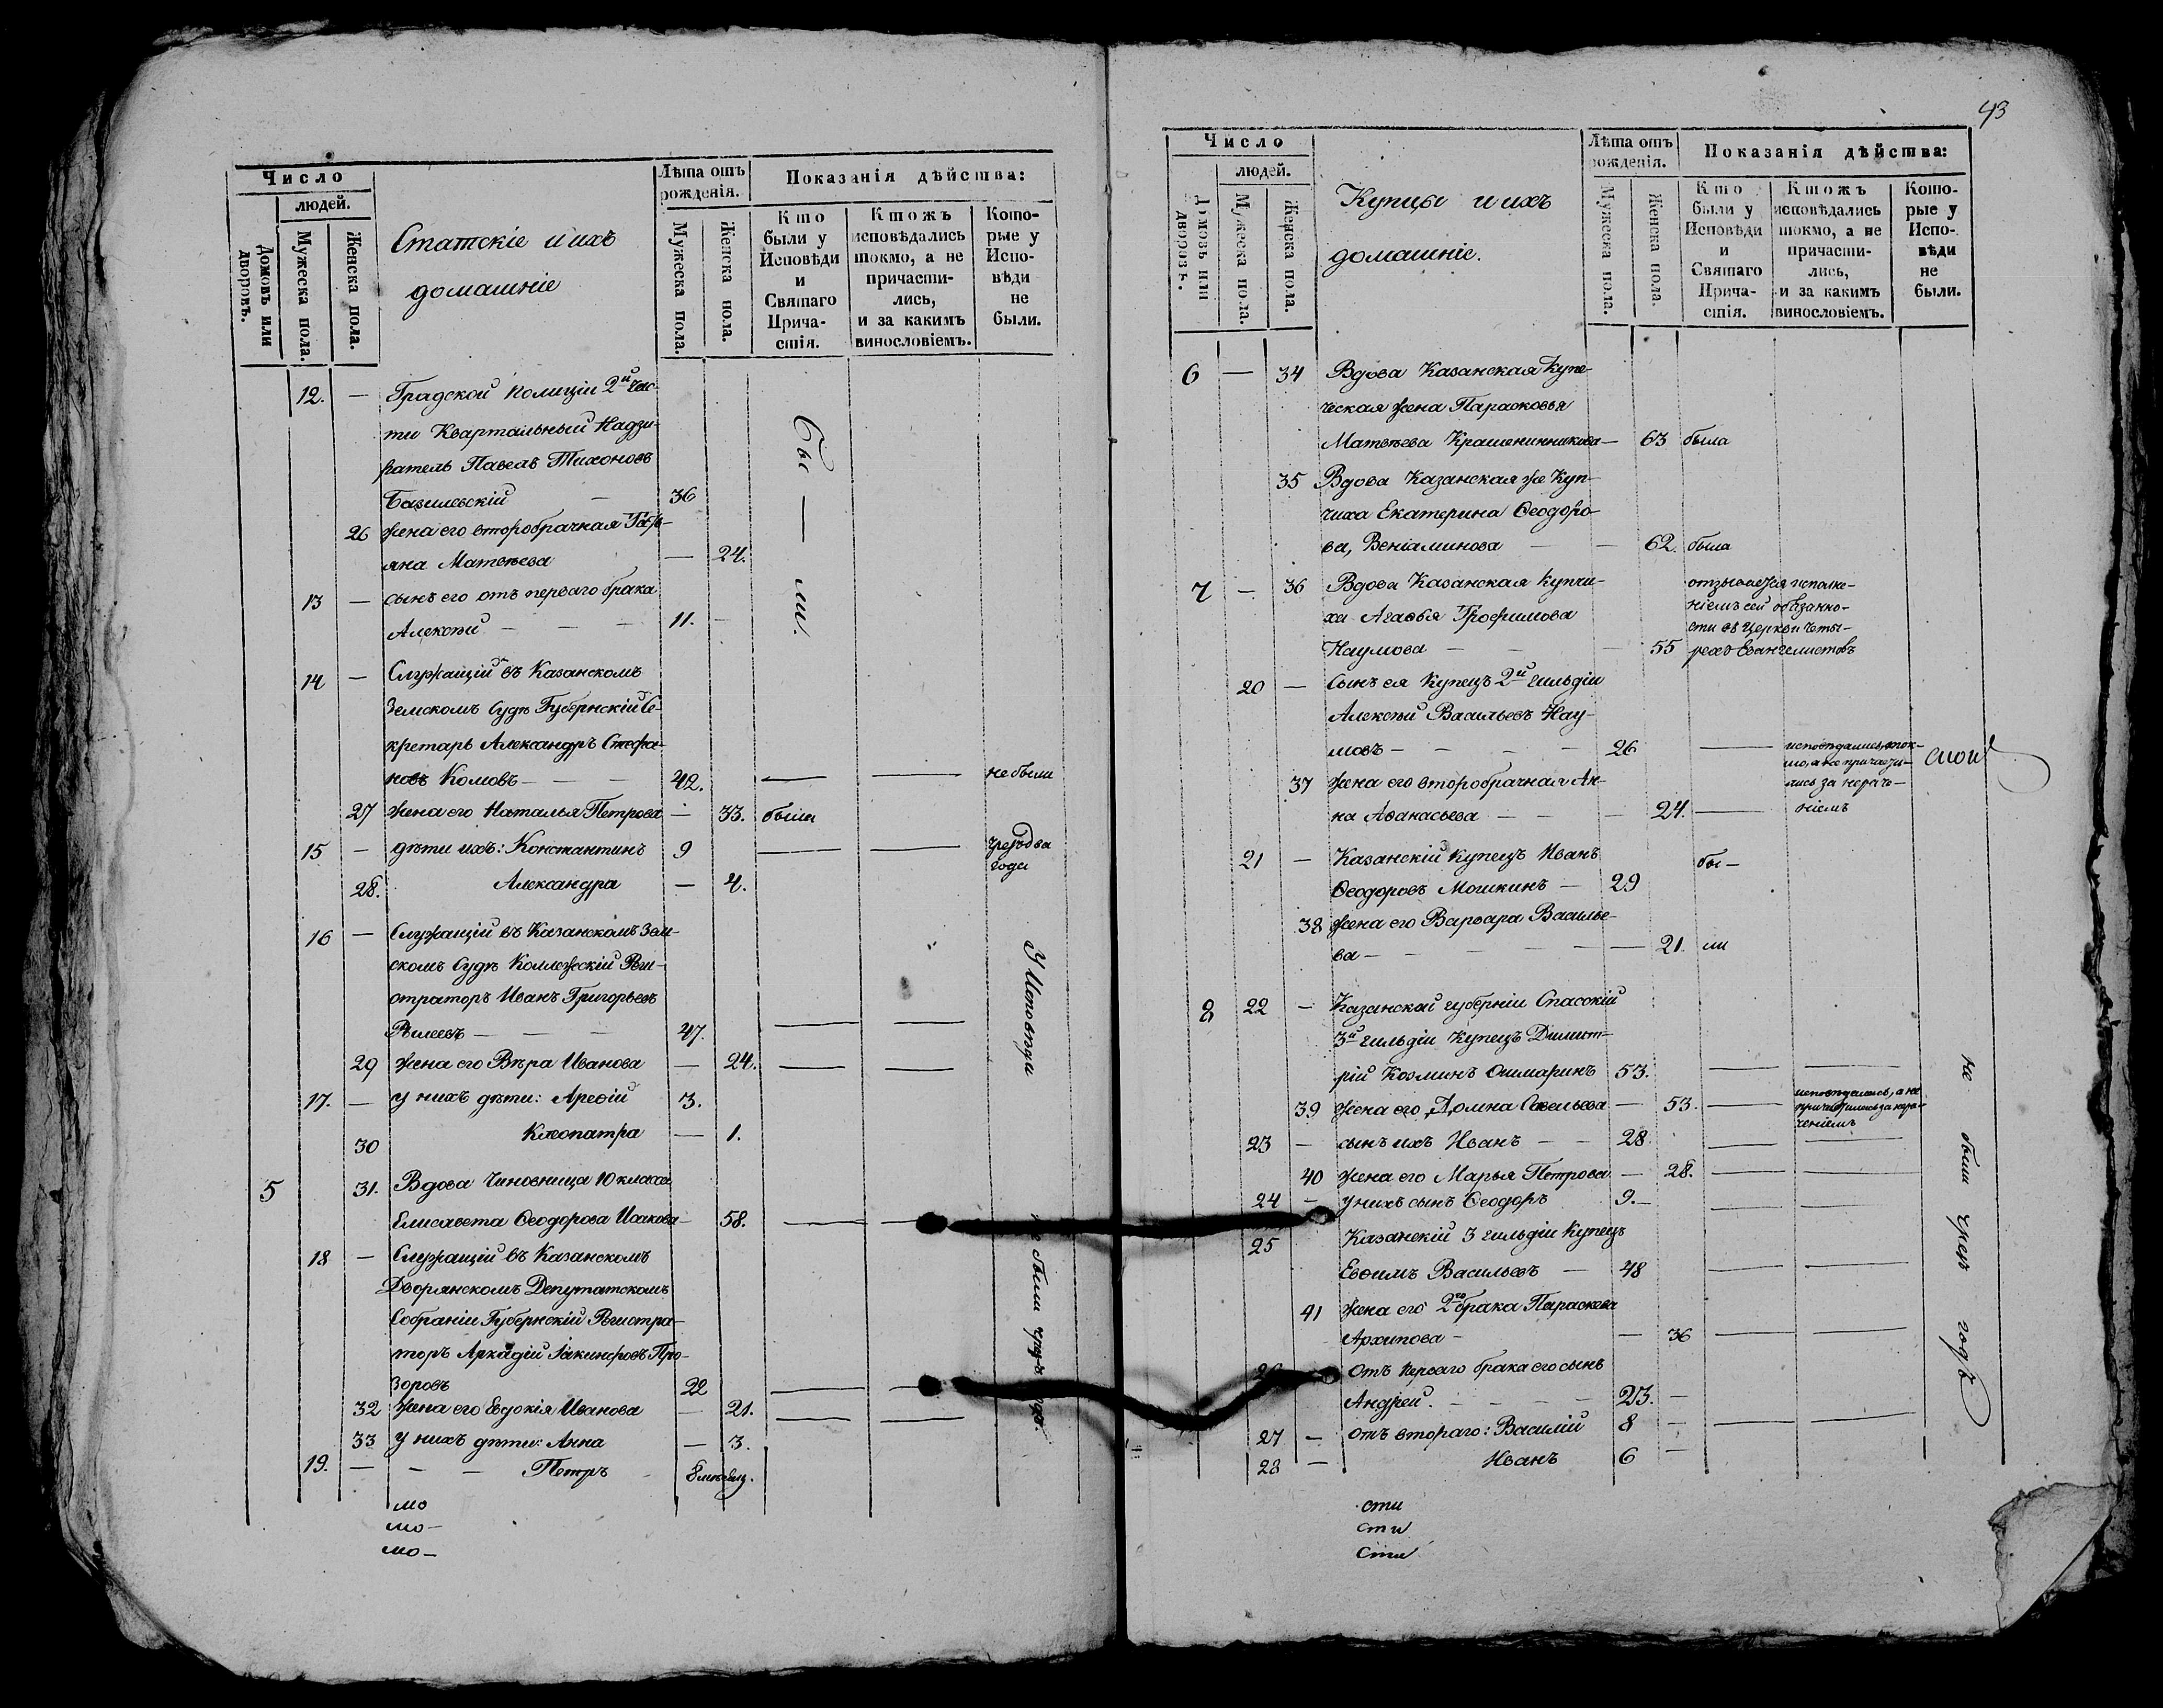 Число
людей.
Домовъ или дворовъ.
Мужеска пола.
Женска пола.
Статскіе и ихъ
домашніе
Лѣта отъ
рожденія.
Мужеска пола.
Женска пола.
Показанія дѣйства:
Кто
были у
Исповѣди
и
Святаго
Прича-
стія.
Ктожъ
исповѣдались
токмо, а не
причасти-
лись,
и за какимъ
винословіемъ.
Кото-
рые у
Испо-
вѣди
не
были.
12. — Градской Полиціи 2й Час-
ти Квартальный Надзи-
ратель Павелъ Тихоновъ
Базилевскій — 36
26 жена его второбрачная
яна Матвѣева — 24.
13 — сынъ его отъ перваго брака
Алексѣй — — — 11. —
Бы — ли.
14 — Служащій въ Казанскомъ
Земскомъ Судѣ Губернскій Се-
кретарь Александръ Стефа-
новъ Комовъ — — — 42. — — не были
27 жена его Наталья Петрова — 33. была
15 — дѣти ихъ: Константинъ 9 — — чрезъ два
года
28. Александра — 4.
16 — Служащій въ Казанскомъ Зем-
скомъ Судѣ Коллежскій Реги-
страторъ Иванъ Григорьевъ
— — — 47. — —
29 жена его Вѣра Иванова — 24. — —
17. — у нихъ дѣти: Арсеній 3.
30 Клеопатра — 1.
У Исповѣди
5 31. Вдова Чиновница 10 класса
Елисавета Ѳеодорова Исакова — 58. — —
18 — Служащій въ Казанскомъ
Дворянскомъ Депутатскомъ
Собраніи Губернскій Регистра-
торъ Аркадій Іакинфовъ Про-
зоровъ 22 — —
32 жена его Евдокія Иванова — 21. — —
33 у нихъ дѣти: Анна — 3.
19. — — — Петръ 8 мѣсяц.
не были чрезъ годъ.
мо
мо —
мо —
43
Число
людей.
Домовъ или дворовъ.
Мужеска пола.
Женска пола.
Купцы и ихъ
домашніе.
Лѣта отъ
рожденія.
Мужеска пола.
Женска пола.
Показанія дѣйства:
Кто
были у
Исповѣди
и
Святаго
Прича-
стія.
Ктожъ
исповѣдались
токмо, а не
причасти-
лись,
и за какимъ
винословіемъ.
Кото-
рые у
Испо-
вѣди
не
были.
6 — 34 Вдова Казанская Купе-
ческая жена Парасковья
Матвѣева Крашенинникова — 63 была
35 Вдова Казанская же Куп-
чиха Екатерина Ѳеодоро-
ва, Веніаминова — — 62. была
7 — 36 Вдова Казанская Купчи-
ха Агаѳья Трофимова
Наумова — — — 55
отзывается исполне-
ніемъ сей обязанно-
сти въ Церкви Четы-
рехъ Евангелистовъ
20 — Сынъ ея Купецъ 2й гильдіи
Алексѣй Васильевъ Нау-
мовъ — — — — 26 —
37 жена его второбрачная Ан-
на Аѳанасьева — — — 24. —
исповѣдались, ток-
мо, а не причасти-
лись за нераче-
ніемъ
21 — Казанскій Купецъ Иванъ бы —
Ѳеодоровъ Мошкинъ — 29
38 жена его Варвара Василье-
ва — — — — — 21. ли
8 22 — Казанской губерніи Спасскій
3й гильдіи Купецъ Димит-
рій Козминъ Ошмаринъ 53. — —
39 жена его Домна Савельева — 53. —
исповѣдалась, а не
причастилась за нера-
ченіемъ
23 — сынъ ихъ Иванъ — — 28 — —
40 жена его Марья Петрова — 28. — —
24 — у нихъ сынъ Ѳеодоръ 9. — — —
25 Казанскій 3 гильдіи Купецъ
Евѳимъ Васильевъ — 48 — —
41 жена его 2го брака Параскева
Архипова — — 36 — —
26 отъ перваго брака его сынъ
Андрей. — — — 23. —
27 — отъ втораго: Василій 8 — — —
28 — Иванъ 6 —
не были чрезъ годъ
сти
сти
сти